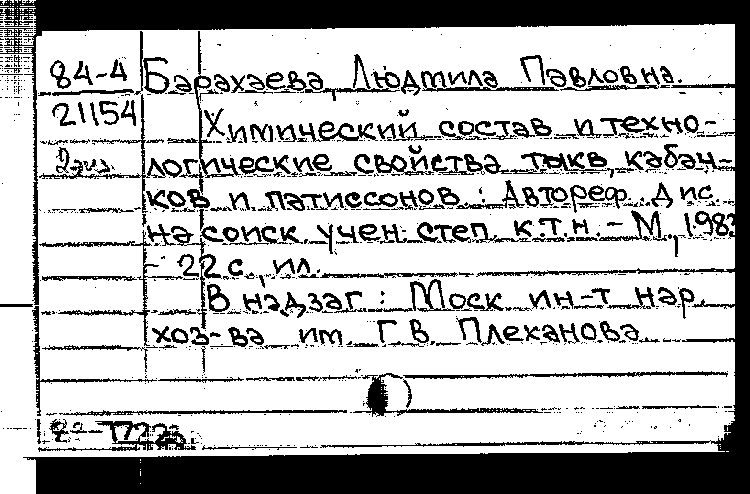 84-4 Барахаева, Людмила Павловна.
21154 Химический состав и техно-
2экз. логические свойства тыкв, кабач-
ков и патиссонов : Автореф. дис.
на соиск. учен. степ. к.т.н. – М., 1983
– 22 с., ил.
В надзаг : Моск ин-т нар.
хоз-ва им. Г.В. Плеханова